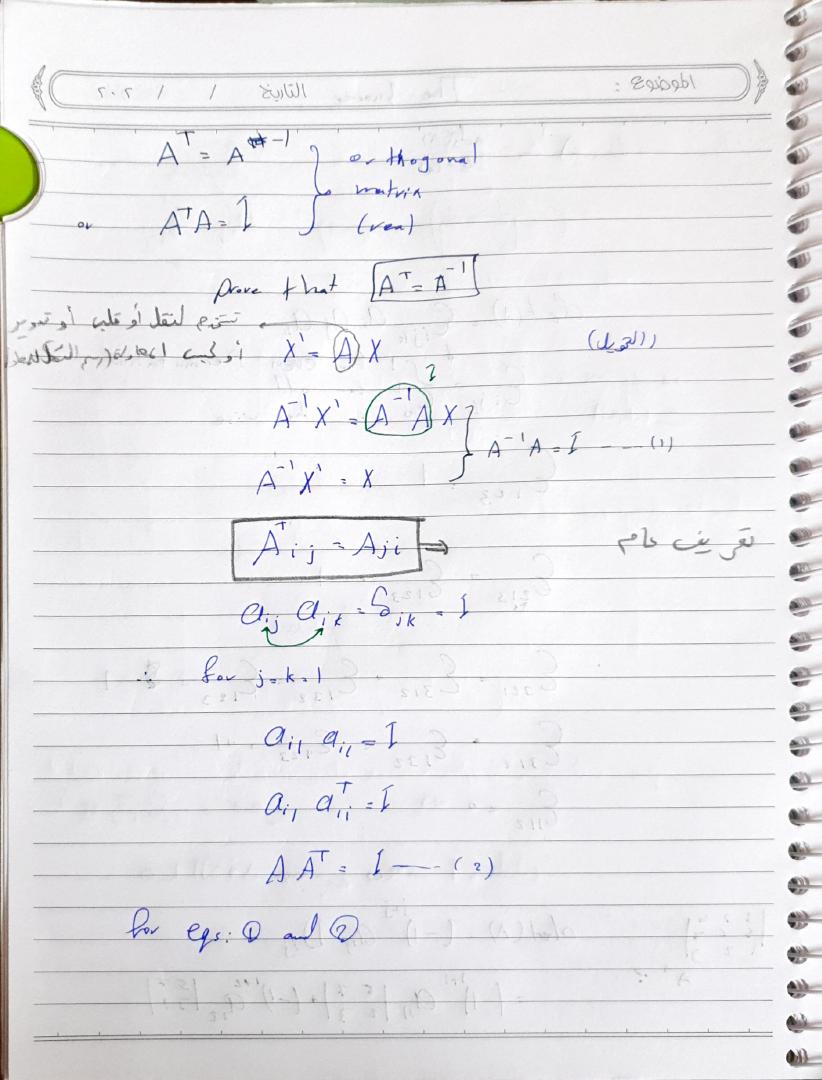 الموضوع :
التاريخ / / ٢٠٢
Aᵀ = A⁻¹
orthogonal
matrix
(real)
or AᵀA = I
prove that Aᵀ = A⁻¹
تستخدم لنقل أو قلب أو تدوير
(التحويل)
X' = A X
I
A⁻¹X' = A⁻¹A X
A⁻¹A = I ---- (1)
A⁻¹X' = X
Aᵀij = Aji ⇒
تعريف عام
aij aik = δjk = I
∴ for j=k=1
ai1 ai1 = I
ai1 aᵀ1i = I
A Aᵀ = I —— (2)
for eqs: ① and ②